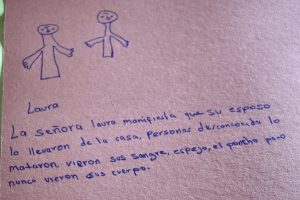 Laura
La señora laura manifiesta que su esposo
lo llevaron de la casa, personas desconocida lo
mataron vieron sus sangre, espejo, el poncho pero
nunca vieron sus cuerpo.